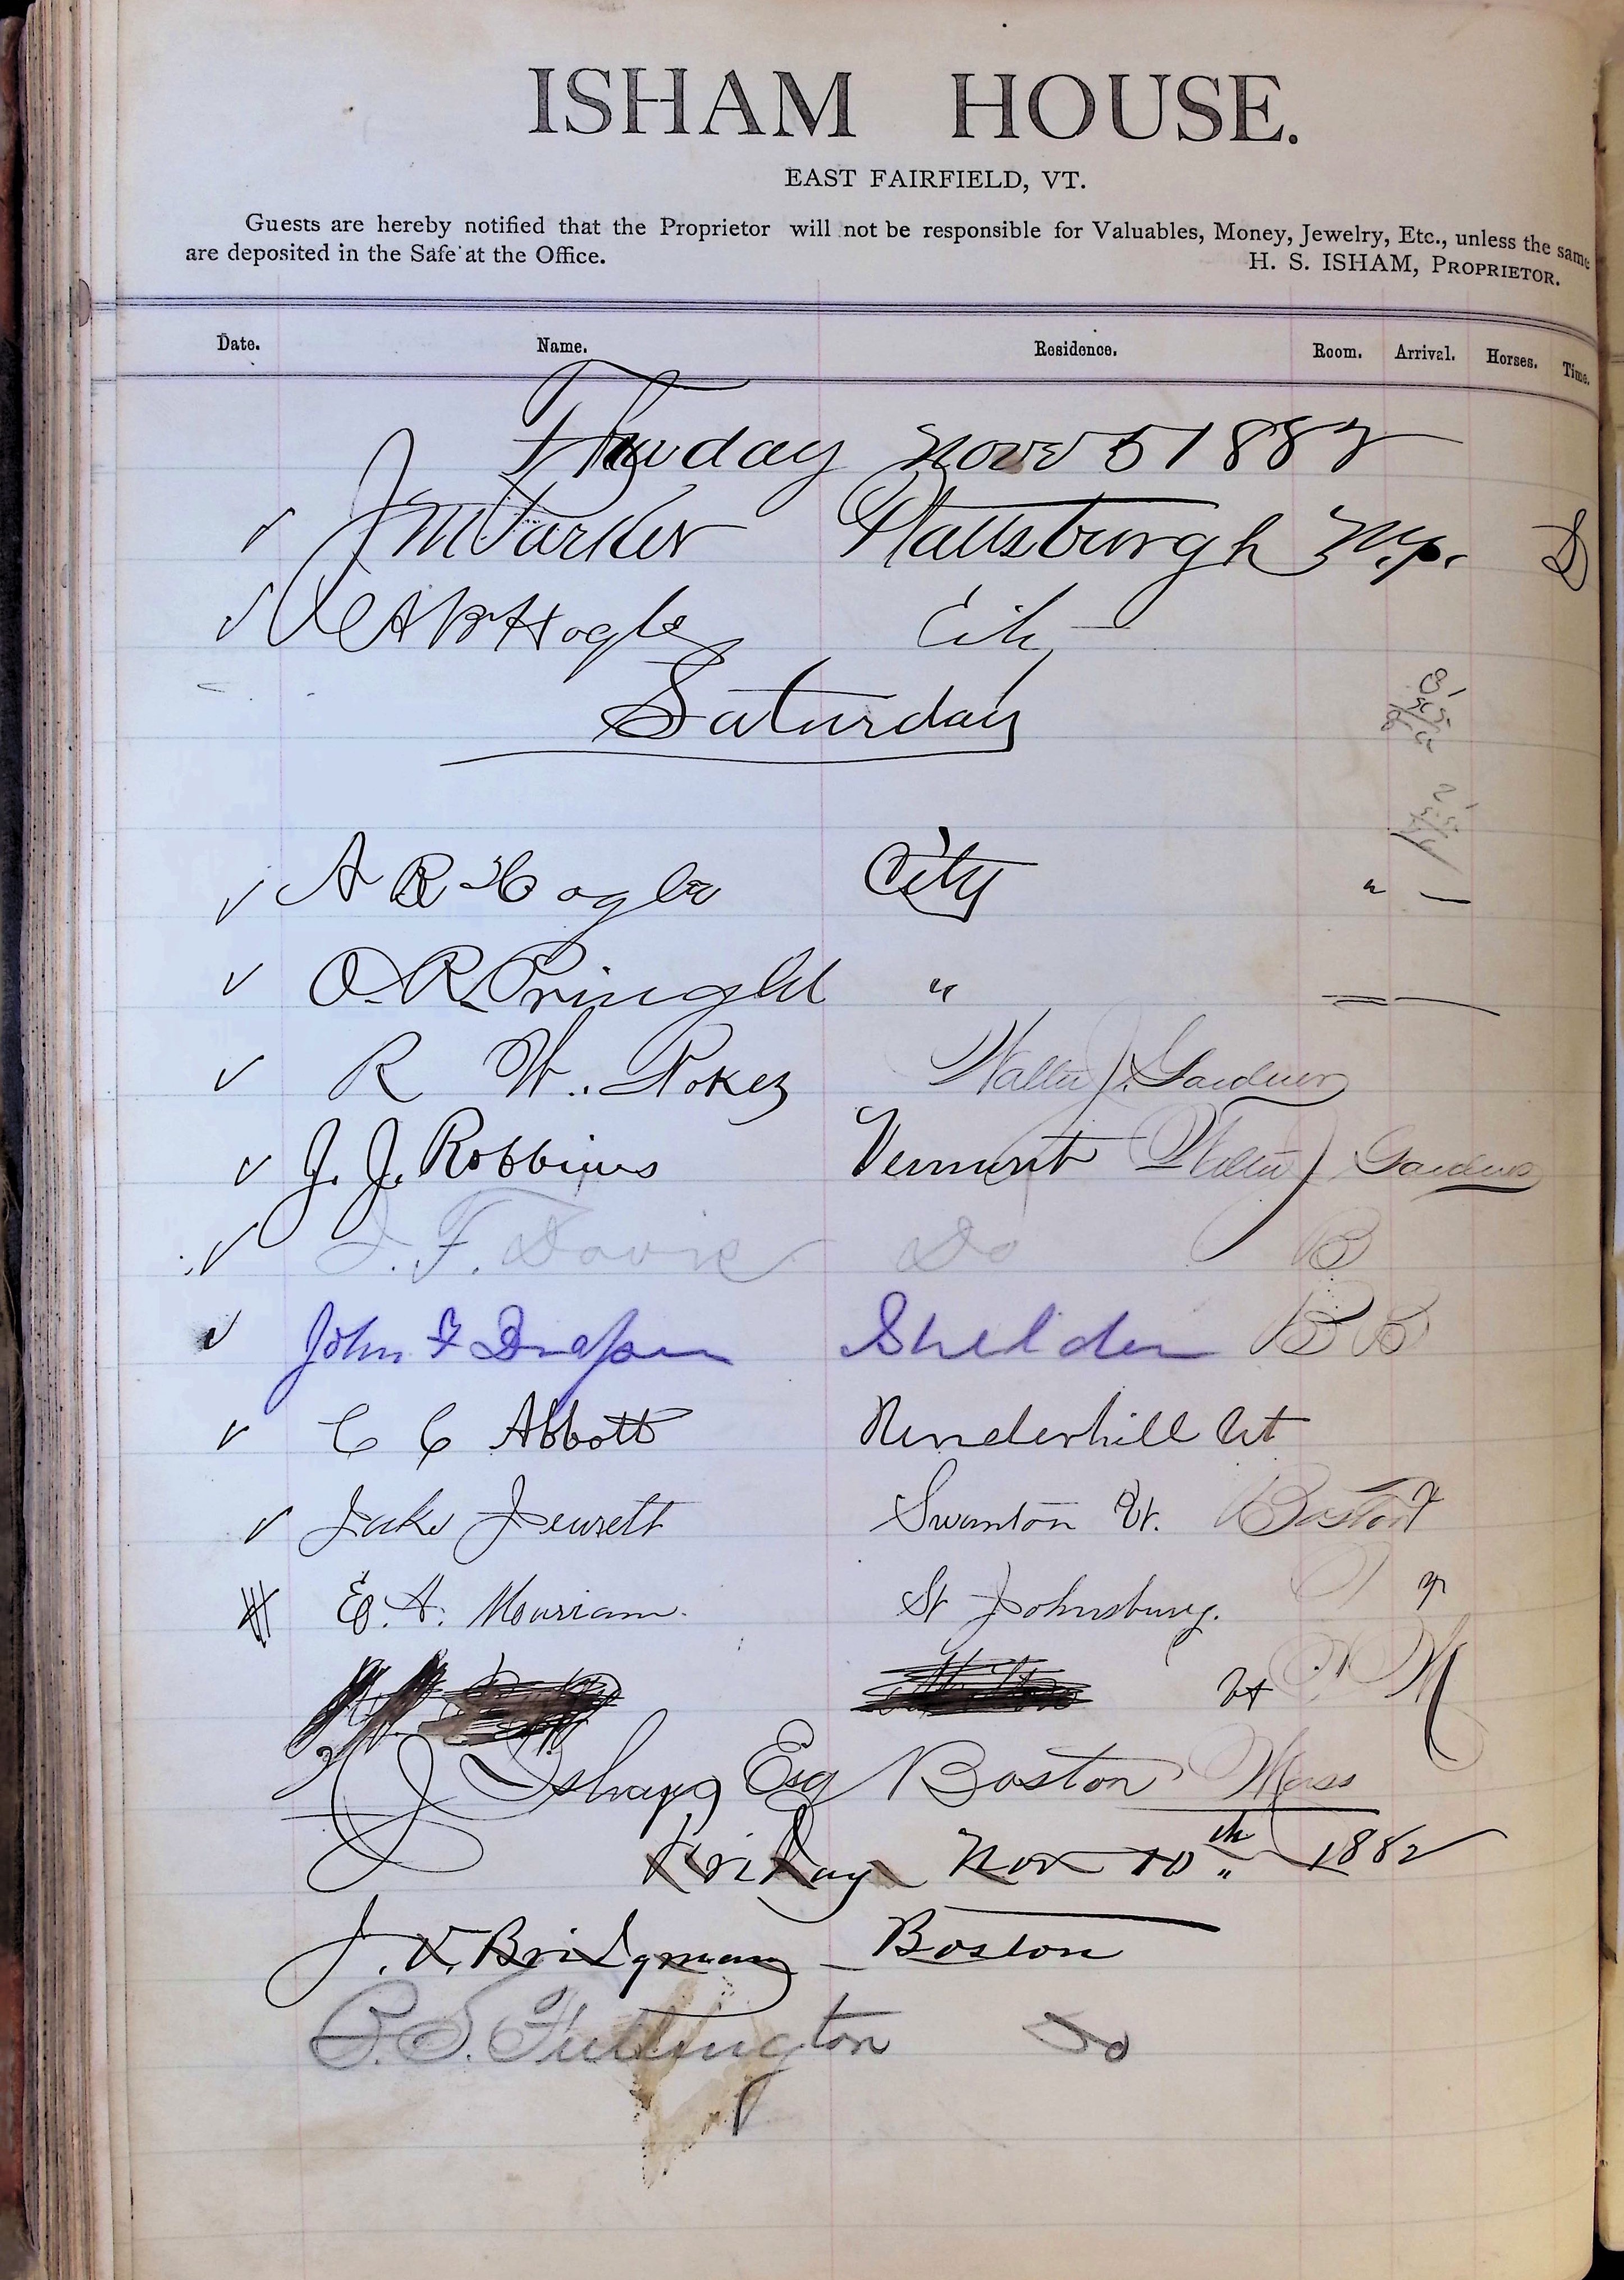 ISHAM HOUSE.
EAST FAIRFIELD, VT.
Guests are hereby notified that the Proprietor will not be responsible for Valuables, Money, Jewelry, Etc., unless the same
are deposited in the Safe at the Office.
H. S. ISHAM, PROPRIETOR.
Date. Name. Residence. Room. Arrival. Horses. Time.
1882
J M Parker Plattsburgh N.y. D
A B Hogle
Saturday
A R Hogle City " —
O. R. " —
R W. Walter J. Gardner
J. J. Robbins Vermont Walter J Gardner
F. Davis Do B
John F Sheldon B B
C C Abbott Underhill Vt
Jake Jewett Swanton Vt. Boston
E. A. St Johnsbury.
Vt M
J Esq Boston Mass
Friday Nov 10th 1882
J. V. Bridgman Boston
Fullington Do